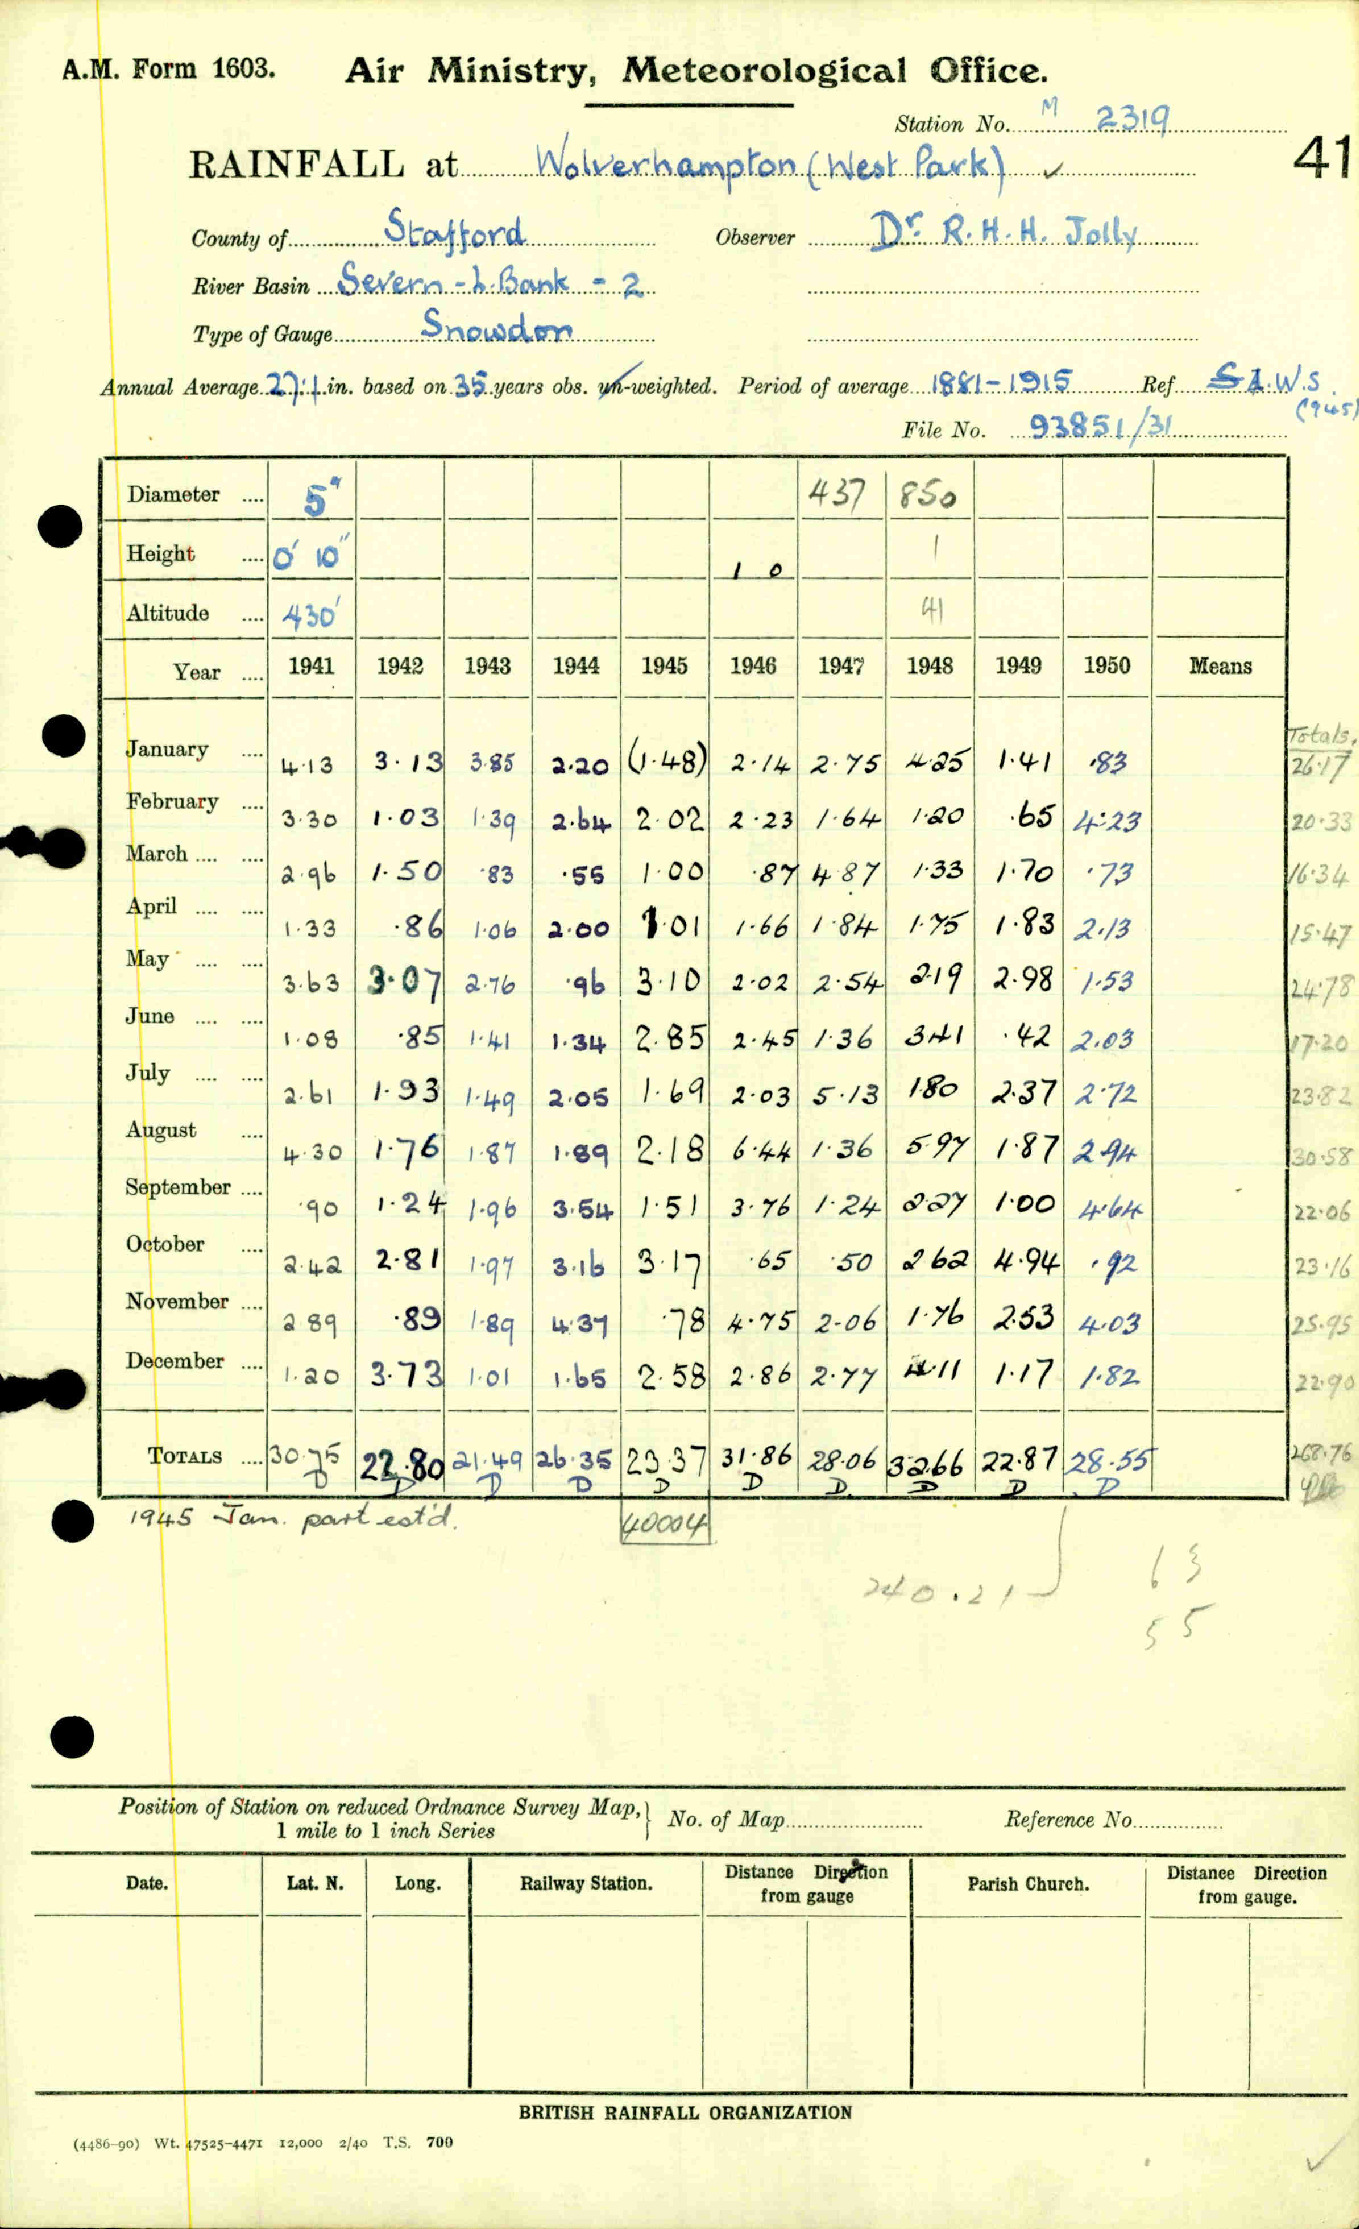 A.M. Form 1603. Air Ministry, Meteorological Office.
Station No. M 2319
41
RAINFALL at Wolverhampton (West Park) ✓
County of Stafford Observer Dr. R. H. H. Jolly
River Basin Severn - L. Bank - 2
Type of Gauge Snowdon
Annual Average 27.1 in. based on 35 years obs. un-weighted. Period of average 1881-1915 Ref. S.A.W.S.
(1945)
File No. 93851/31
Diameter .... 5" 437 850
Height .... 0' 10" 1 0 1
Altitude .... 430' 41
Year .... 1941 1942 1943 1944 1945 1946 1947 1948 1949 1950 Means
Totals.
January .... 4.13 3.13 3.85 2.20 (1.48) 2.14 2.75 4.25 1.41 .83 26.17
February .... 3.30 1.03 1.39 2.64 2.02 2.23 1.64 1.20 .65 4.23 20.33
March .... .... 2.96 1.50 .83 .55 1.00 .87 4.87 1.33 1.70 .73 16.34
April .... .... 1.33 .86 1.06 2.00 1.01 1.66 1.84 1.75 1.83 2.13 15.47
May .... .... 3.63 3.07 2.76 .96 3.10 2.02 2.54 2.19 2.98 1.53 24.78
June .... .... 1.08 .85 1.41 1.34 2.85 2.45 1.36 3.41 .42 2.03 17.20
July .... .... 2.61 1.93 1.49 2.05 1.69 2.03 5.13 1.80 2.37 2.72 23.82
August .... 4.30 1.76 1.87 1.89 2.18 6.44 1.36 5.97 1.87 2.94 30.58
September .... .90 1.24 1.96 3.54 1.51 3.76 1.24 2.27 1.00 4.64 22.06
October .... 2.42 2.81 1.97 3.16 3.17 .65 .50 2.62 4.94 .92 23.16
November .... 2.89 .89 1.89 4.37 .78 4.75 2.06 1.76 2.53 4.03 25.95
December .... 1.20 3.73 1.01 1.65 2.58 2.86 2.77 4.11 1.17 1.82 22.90
TOTALS .... 30.75 22.80 21.49 26.35 23.37 31.86 28.06 32.66 22.87 28.55 268.76
D D D D D D D D D D
1945 Jan. part est'd. 40004
240.21 63
55
Position of Station on reduced Ordnance Survey Map, } No. of Map Reference No.
1 mile to 1 inch Series
Date. Lat. N. Long. Railway Station. Distance Direction from gauge Parish Church. Distance Direction from gauge.
BRITISH RAINFALL ORGANIZATION
(4486-90) Wt. 47525-4471 12,000 2/40 T.S. 700